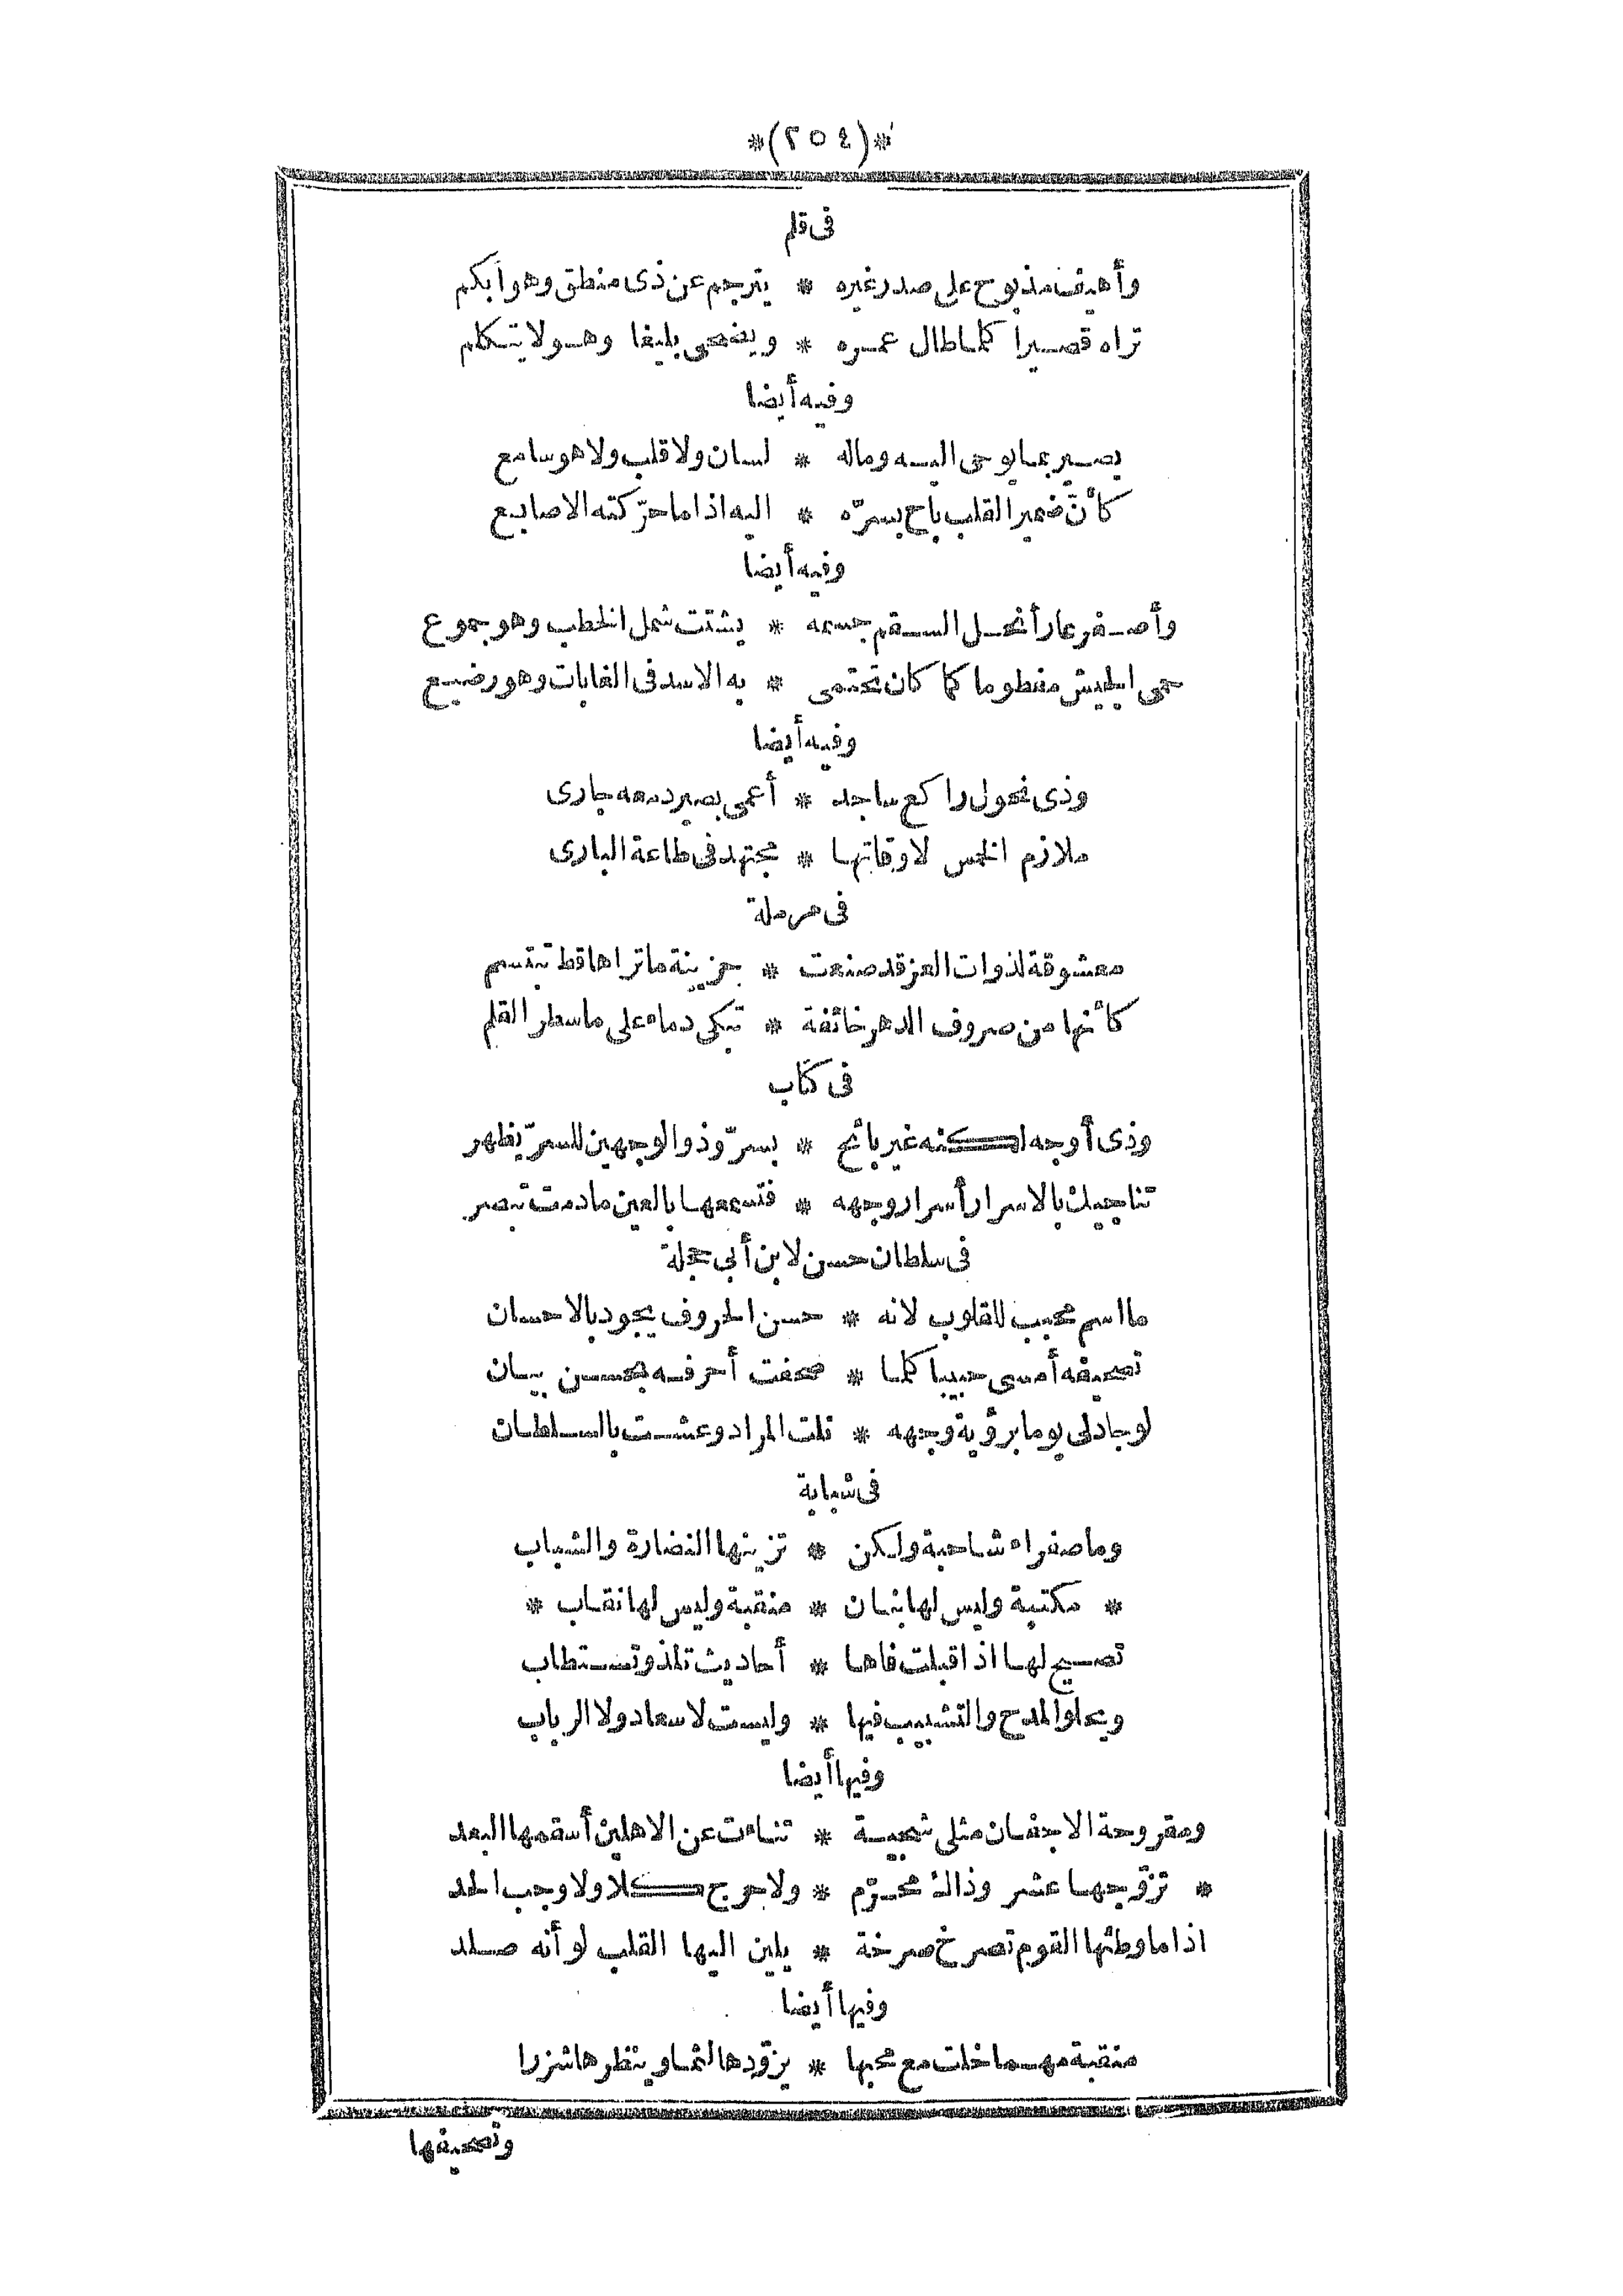 *(٢٥٤)*
فى قلم
وأهيف مذبوح على صدر غيره * يترجم عن ذى منطق وهو أبكم
تراه قصيرا كلما طال عمره * ويضحى بليغا وهو لا يتكلم
وفيه أيضا
بصير بما يوحى اليه وماله * لسان ولا قلب ولا هو سامع
كأنّ ضمير القلب باح بسرّه * اليه اذا ما حرّكته الاصابع
وفيه أيضا
وأصفر عار أنحل السقم جسمه * يشتت شمل الخطب وهو جموع
حمى الجيش مفطوما كما كان تحتمى * به الاسد فى الغابات وهو رضيع
وفيه أيضا
وذى نحول راكع ساجد * أعمى بصير دمعه جارى
ملازم الخمس لاوقاتها * مجتهد فى طاعة البارى
فى مرملة
معشوقة لذوات العز قد صنعت * حزينة ما تراها قط تبتسم
كأنها من صروف الدهر خائفة * تبكى دماء على ما سطر القلم
فى كتاب
وذى أوجه لكنه غير بائح * بسرّ وذو الوجهين للسرّ يظهر
تناجيك بالاسرار أسرار وجهه * فتسمعها بالعين مادمت تبصر
فى سلطان حسن لابن أبى حجلة
ما اسم محبب للقلوب لانه * حسن الحروف يجود بالاحسان
تصحيفه أمسى حبيبا كلما * صحفت أحرفه بحسن بيان
لو جادلى يوما برؤية وجهه * نلت المراد وعشت بالسلطان
فى شبابة
وما صفراء شاحبة ولكن * تزينها النضارة والشباب
* مكتبة وليس لها بنان * منقبة وليس لها نقاب *
تصيح لها اذا قبلت فاها * أحاديث تلذ وتستطاب
ويحلو المدح والتشبيب فيها * وليست لاسعاد ولا الرباب
وفيها أيضا
ومقروحة الاجفان مثلى شجية * تناءت عن الاهلين أسقمها البعد
* تزوّجها عشر وذاك محرّم * ولا حرج كلا ولا وجب الحد
اذا ما وطئها القوم تصرخ صرخة * يلين اليها القلب لو أنه صلد
وفيها أيضا
منقبة مهما خلت مع محبها * يزوّدها لثما وينظرها شزرا
وتصحيفها